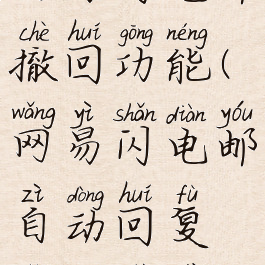 chè huí gōng néng
撤回功能(
wǎng yì shǎn diàn yóu
网易闪电邮
zì dòng huí fù
自动回复